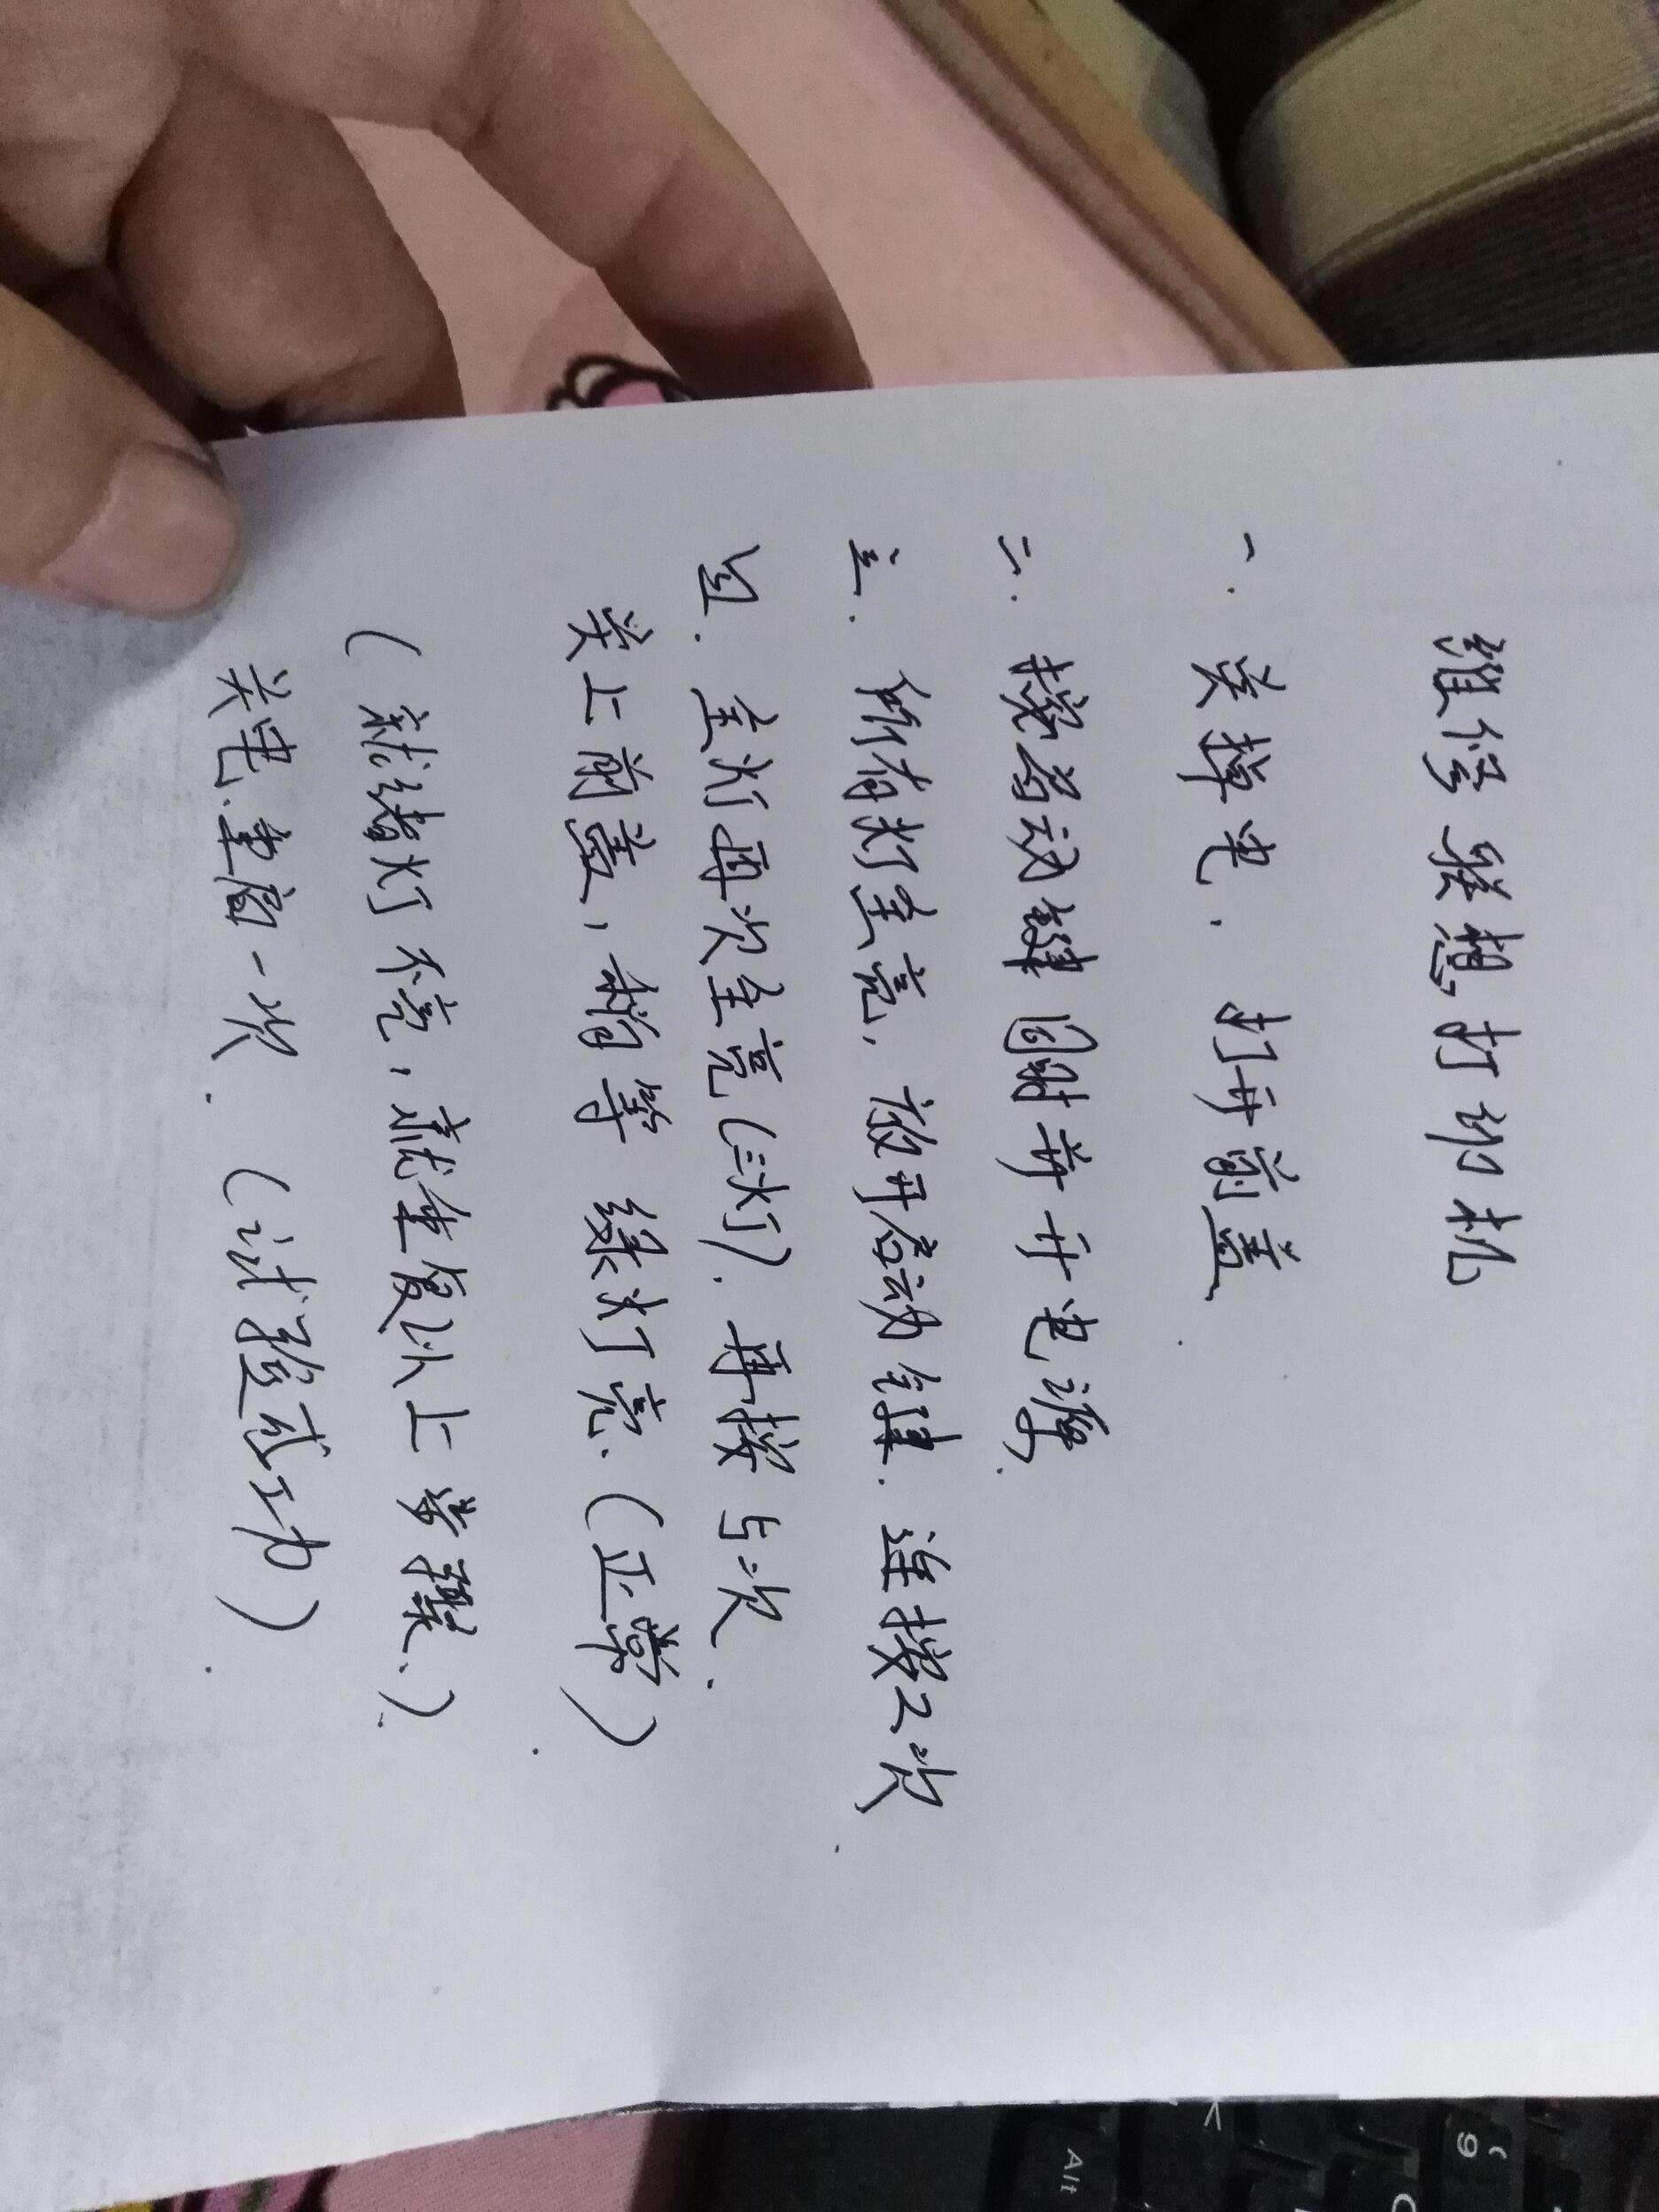 维修联想打印机
一. 关掉电. 打开前盖.
二. 按启动键同时并开电源.
三. 所有灯全亮, 放开启动键. 连按2次.
四. 全灯再次全亮(三灯). 再按5次.
关上前盖, 稍等 绿灯亮.(正常).
(就绪灯不亮, 就重复以上步骤.)
关电.重启一次. (试验成功).
Alt
9